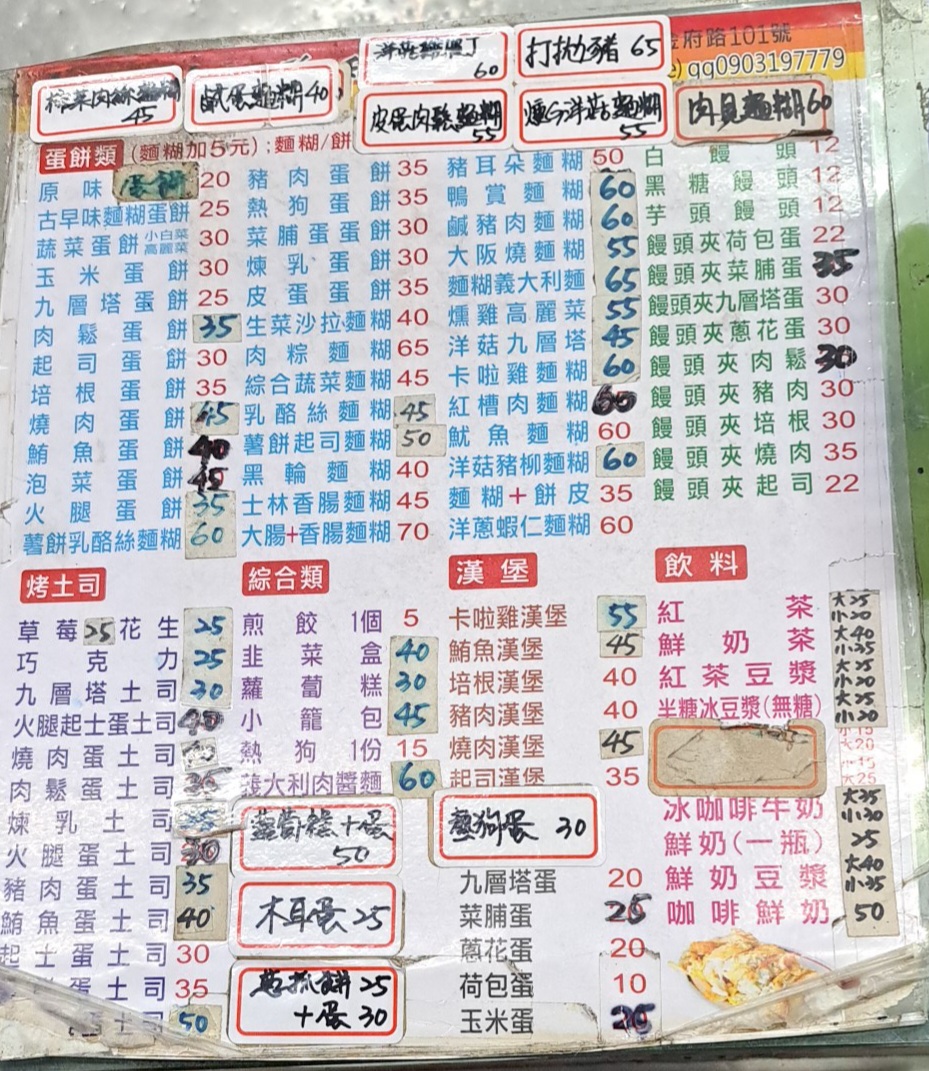 金府路101號
qq0903197779
打拋豬 65
60
榨菜肉絲麵糊 45
鹹蛋麵糊 40
皮蛋肉鬆麵糊 55
燻外洋菇麵糊 55
肉貝麵糊 60
蛋餅類 (麵糊加5元);麵糊/餅
原味蛋餅 20
古早味麵糊蛋餅 25
蔬菜蛋餅 小白菜 高麗菜 30
玉米蛋餅 30
九層塔蛋餅 25
肉鬆蛋餅 35
起司蛋餅 30
培根蛋餅 35
燒肉蛋餅 45
鮪魚蛋餅 40
泡菜蛋餅 45
火腿蛋餅 35
薯餅乳酪絲麵糊 60
豬肉蛋餅 35
熱狗蛋餅 35
菜脯蛋蛋餅 30
煉乳蛋餅 30
皮蛋蛋餅 35
生菜沙拉麵糊 40
肉粽麵糊 65
綜合蔬菜麵糊 45
乳酪絲麵糊 45
薯餅起司麵糊 50
黑輪麵糊 40
士林香腸麵糊 45
大腸+香腸麵糊 70
豬耳朵麵糊 50
鴨賞麵糊 60
鹹豬肉麵糊 60
大阪燒麵糊 55
麵糊義大利麵 65
燻雞高麗菜 55
洋菇九層塔 45
卡啦雞麵糊 60
紅槽肉麵糊 60
魷魚麵糊 60
洋菇豬柳麵糊 60
麵糊+餅皮 35
洋蔥蝦仁麵糊 60
白饅頭 12
黑糖饅頭 12
芋頭饅頭 12
饅頭夾荷包蛋 22
饅頭夾菜脯蛋 35
饅頭夾九層塔蛋 30
饅頭夾蔥花蛋 30
饅頭夾肉鬆 30
饅頭夾豬肉 30
饅頭夾培根 30
饅頭夾燒肉 35
饅頭夾起司 22
烤土司
草莓25花生 25
巧克力 25
九層塔土司 30
火腿起士蛋土司 40
燒肉蛋土司
肉鬆蛋土司
煉乳土司
火腿蛋土司 30
豬肉蛋土司 35
鮪魚蛋土司 40
起士蛋土司 30
蛋土司 35
蛋土司 50
綜合類
煎餃1個 5
韭菜盒 40
蘿蔔糕 30
小籠包 45
熱狗1份 15
義大利肉醬麵 60
蘿蔔糕+蛋 50
木耳蛋 25
蔥抓餅 25
+蛋 30
漢堡
卡啦雞漢堡 55
鮪魚漢堡 45
培根漢堡 40
豬肉漢堡 40
燒肉漢堡 45
起司漢堡 35
熱狗蛋 30
九層塔蛋 20
菜脯蛋 25
蔥花蛋 20
荷包蛋 10
玉米蛋
飲料
紅茶 大25 小20
鮮奶茶 大40 小35
紅茶豆漿 大25 小20
半糖冰豆漿(無糖) 大25 小20
小15
大20
小15
大25
冰咖啡牛奶 大35 小30
鮮奶(一瓶) 25
鮮奶豆漿 大40 小35
咖啡鮮奶 50